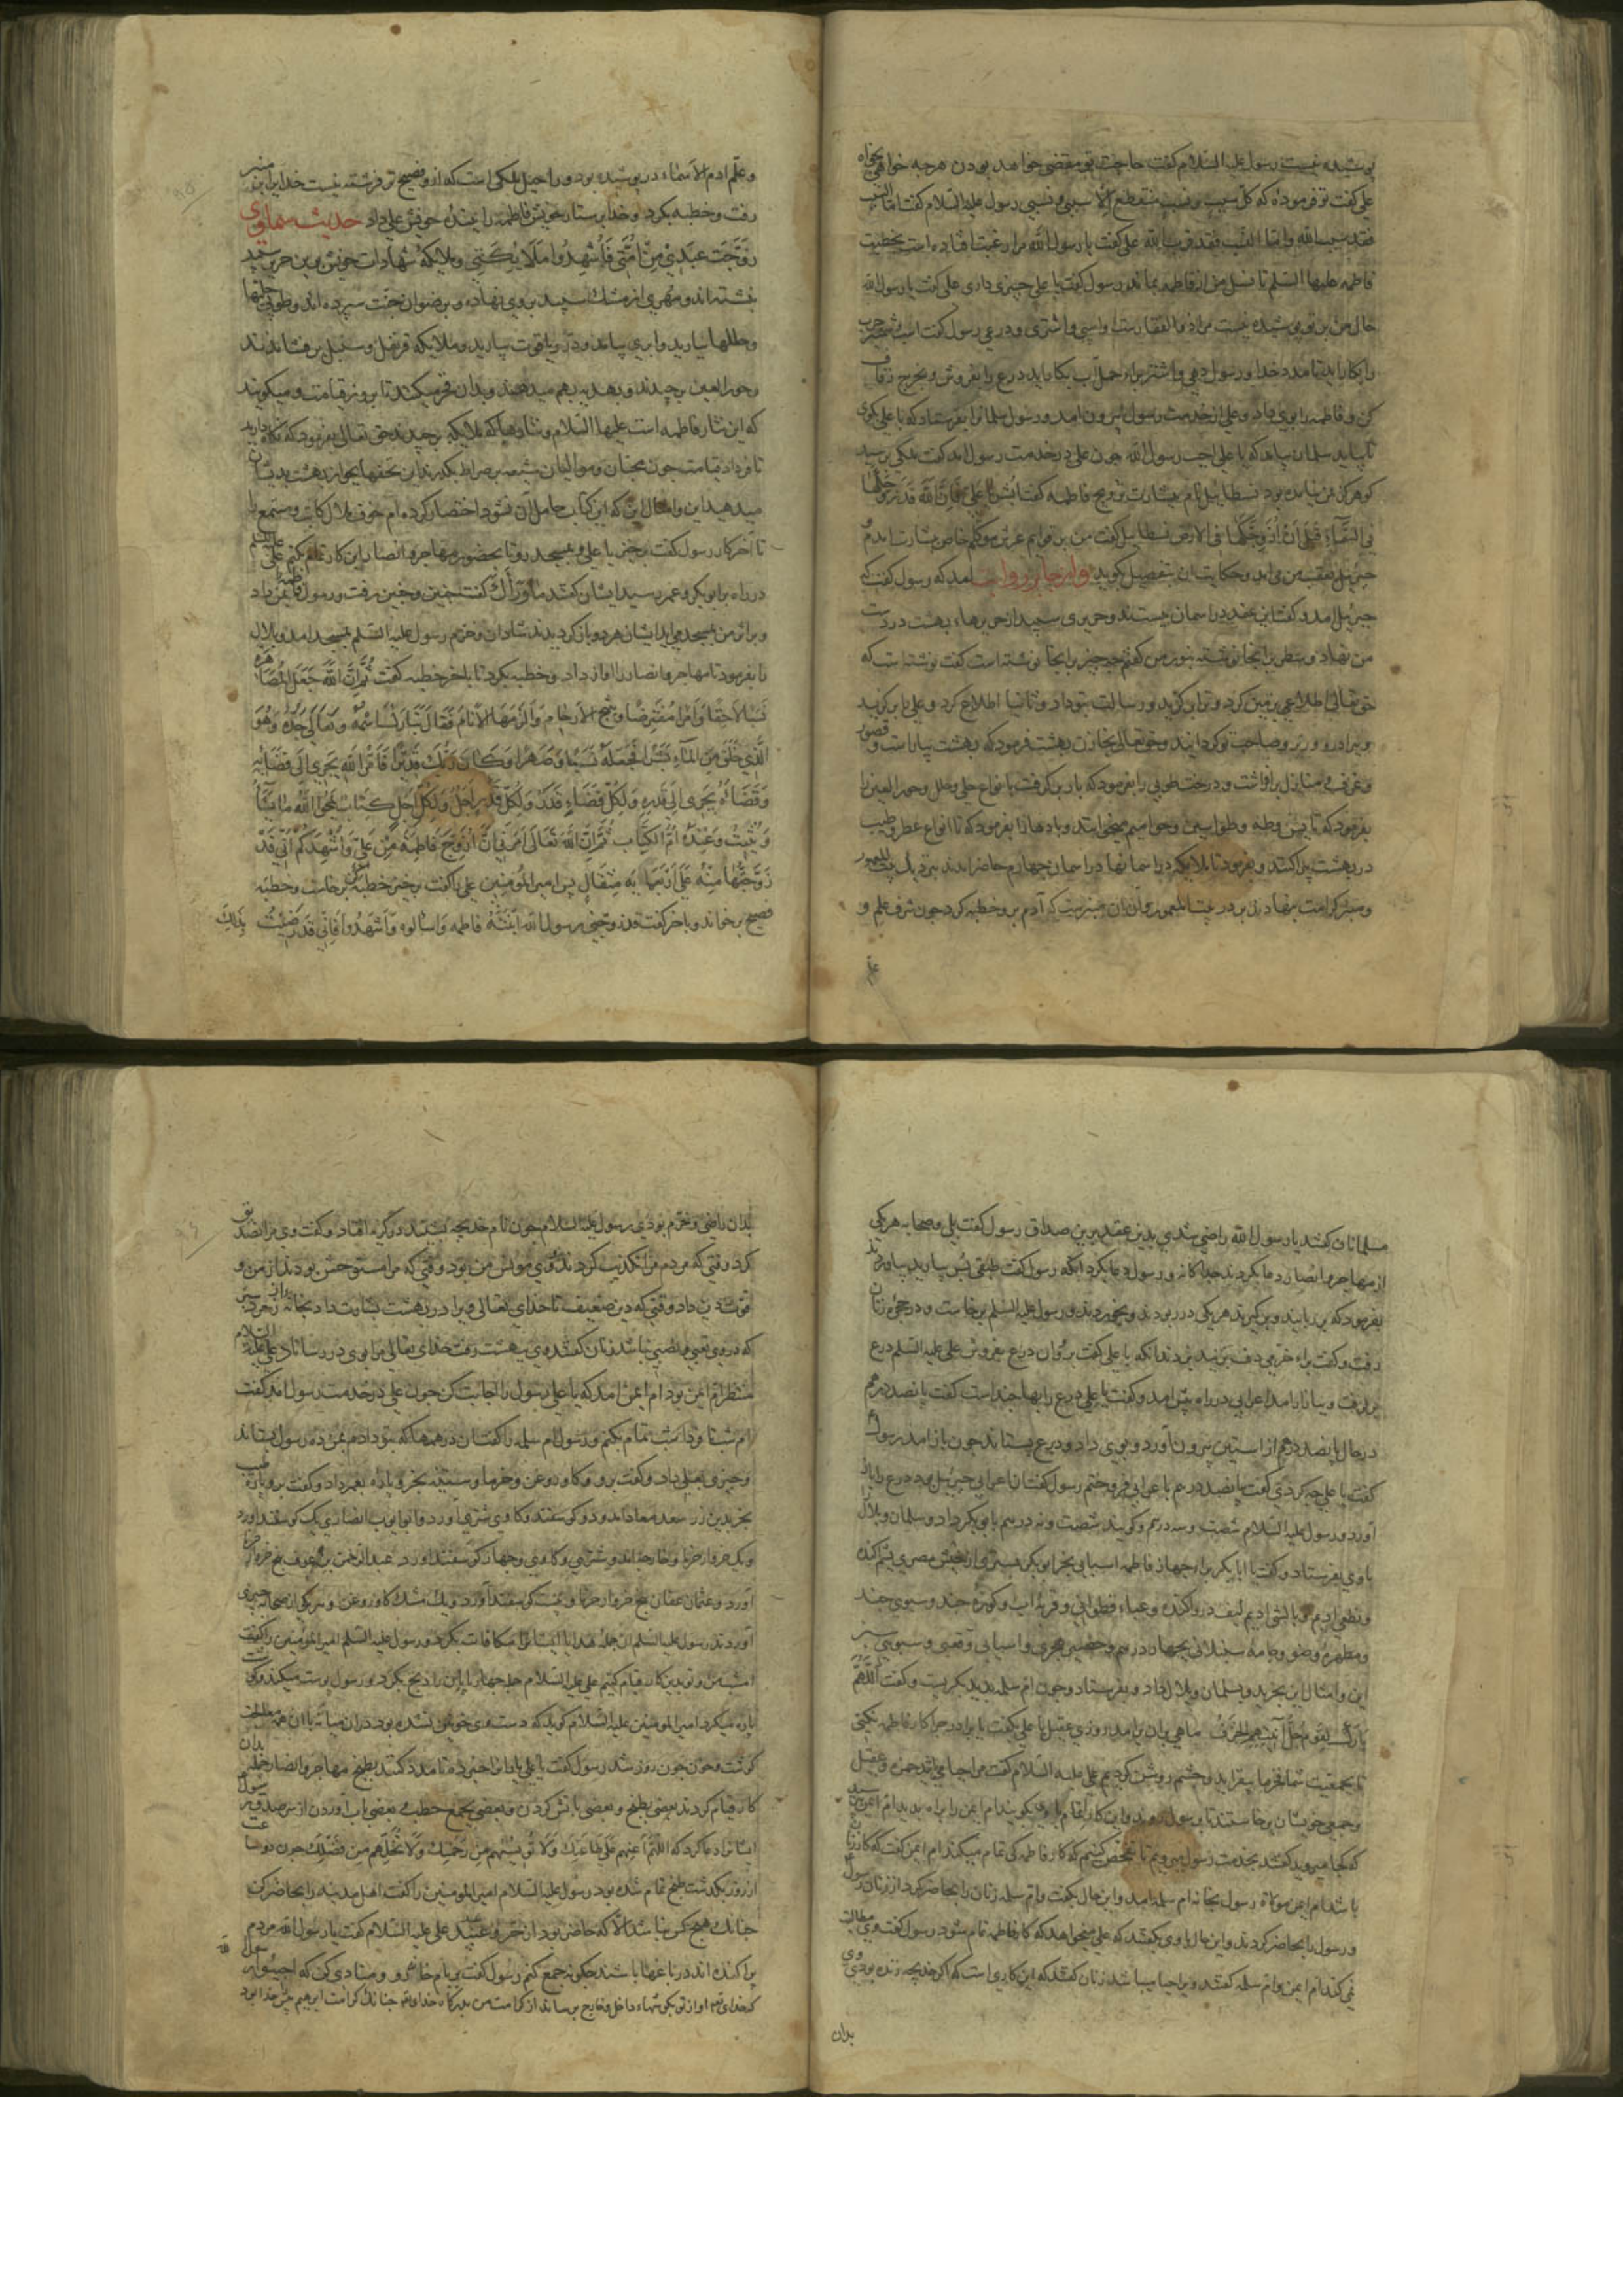 پوشیده نیست رسول علیه السلام گفت حاجت تو مقضی خواهد بودن هرچه خواهی بخواه
علی گفت تو فرموده که کل سبب و نسب منقطع الا سببی و نسبی رسول علیه السلام گفت اما السبب
فقد سبب الله و اما النسب فقد قرب الله علی گفت یا رسول الله مرا رغبت افتاده است بخطبت
فاطمه علیها السلم تا نسل من از فاطمه بماند رسول گفت یا علی چیزی داری علی گفت یا رسول الله
حال من بر تو پوشیده نیست مرا ذو الفقارست و اسپی و اشتری و درعی رسول گفت اسب و شمشیر حرب
را بکار باید تا مدد خدا و رسول دهی و اشتر براء حمل آب بکار باید درع را بفروش و بخرج زفاف
کن و فاطمه را بوی داد و علی از خدمت رسول بیرون امد و رسول سلمان را بفرستاد که با علی بگوی
تا بیاید سلمان بیامد که یا علی اجب رسول الله چون علی در خدمت رسول امد گفت ملکی برسید
که هرگز بر من نیامده بود نسطاییل نام بشارت تزویج فاطمه گفت ابشر یا علی فان الله قد زوجکها
فی السماء قبل ان ازوجکها فی الارض نسطاییل گفت من بر قوایم عرش موکلم خاص بشارت امدم و
جبرئیل بعقب من می اید و حکایت ان بتفصیل گوید و از جابر روایت امد که رسول گفت که
جبرئیل امد و گفت این عقد در اسمان بستند و حریری سپید از حریرهاء بهشت در دست
من نهاد دو سطر بر انجا نوشته بنور من گفتم چه چیز بر انجا نوشته است گفت نوشته است که
حق تعالی اطلاعی بر زمین کرد و ترا برگزید و رسالت بتو داد و ثانیا اطلاع کرد و علی را برگزید
و برادر و وزیر و صاحب تو گردانید و حق تعالی بخازن بهشت فرمود که بهشت بیاراست و قصور
و غرف و منازل برافراشت و درخت طوبی را بفرمود که بار برگرفت بانواع حلی و حلل و حور العین را
بفرمود که تا یس و طه و طواسین و حوامیم میخوانند و بادها را بفرمود که تا انواع عطر و طیب
در بهشت پراکنند و بفرمود تا ملایکه در اسمانها در اسمان چهارم حاضر امدند نزدیک بیت المعمور
و منبر کرامت بنهادند بر در بیت المعمور و آن ان منبرست که آدم برو خطبه کرد چون شرف علم و
علّم
و علّم ادم الاسماء در پوشیده بود و راحیل ملکی است که ازو فصیح تر فرشته نیست خدا بر این منبر
رفت و خطبه بکرد و خدا پرستار خویش فاطمه را ببنده خویش علی داد حدیث سماوی
زوّجت عبدی من امتی فاشهدوا ملایکتی و ملایکه شهادات خویش برین حریر سپید
نبشته اند و مهری از مشک سپید بر وی نهاده و برضوان جنت سپرده اند و طوبی حلیها
و حللها ببارید و ابری بیامد و در و یاقوت ببارید و ملایکه قرنفل و سنبل بر فشاندند
و حور العین برچیدند و بهدیه بهم میدهند و بدان فخر میکنند تا بروز قیامت و میگویند
که این نثار فاطمه است علیها السلام و نثارها که ملایکه برچیدند حق تعالی بفرمود که نگاه دارید
تا فرداء قیامت چون محبان و موالیان شیعه بر صراط بگذرند این تحفها بجواز بهشت بدیشان
میدهید این و امثال این که این کتاب حامل آن نشود اختصار کرده ام خوف ملال کاتب و مستمع را
تا آخر کار رسول گفت برخیز یا علی و بمسجد رو تا بحضور مهاجر و انصار این کار تمام بکنم علی علیه السلم
در راه برابو بکر و عمر رسید ایشان گفتند ما وراءک گفت چنین و چنین برفت و رسول فاطمه را بمن داد
و بر اثر من بمسجد می اید ایشان هر دو باز گردیدند شادان و خرم رسول علیه السلم بمسجد امد و بلال
را بفرمود تا مهاجر و انصار را اواز داد و خطبه بکرد تا باخر خطبه گفت ثم ان الله جعل المصاهرة
نسبا لاحقا و امرا مفترضا وشج الارحام و الزمها الانام فقال تبارک اسمه و تعالی جده و هو
الذی خلق من الماء بشرا فجعله نسبا و صهرا و کان ربک قدیرا فامر الله یجری الی قضایه
و قضاؤه یجری الی قدره و لکل قضاء قدر و لکل قدر اجل و لکل اجل کتاب یمحو الله ما یشآء
و یثبت و عنده ام الکتاب ثم ان الله تعالی امرنی بان ازوج فاطمة من علی و اشهدکم انی قد
زوجتها منه علی اربعمایه مثقال پس امیر المومنین علی را گفت برخیز خطبه کن برخاست و خطبه
فصیح برخواند و باخر گفت قد زوجنی رسول الله ابنته فاطمه و اسالوه و اشهدوا فانی قد رضیت بذلک
مسلمانان گفتند یا رسول الله راضی شدی بدین عقد برین صداق رسول گفت بلی و صحابه هر یکی
از مهاجر و انصار دعا بکردند جداگانه و رسول دعا بکرد انگه رسول گفت طبقی بسر بیارید بیاوردند
بفرمود که بربایند و برگیرند هر یکی در ربودند و بخوردند و رسول علیه السلم برخاست و در حجره زنان
رفت و گفت براء خرمی دف بزنید بزدند انگه یا علی گفت برو آن درع بفروش علی علیه السلم درع
برگرفت و ببازار امد اعرابی در راه پیش امد و گفت یا علی درع را بها چند است گفت پانصد درهم
در حال پانصد درهم از استین بیرون آورد و بوی داد و درع بستاند چون باز امد رسول
گفت یا علی چه کردی گفت پانصد درهم با عرابی فروختم رسول گفت ان اعرابی جبرئیل بود درع را باز
آورد و رسول علیه السلام شصت و سه درم و گویند شصت و نه درهم بابو بکر داد و سلمان و بلال را
با وی بفرستاد و گفت یا ابا بکر براء جهاز فاطمه اسبابی بخر ابو بکر بستری از خیش مصری پشم اکنده
و نطعی ادیم و بالشی ادیم لیف درو اکنده و عباء قطوانی و قربۀ آب و کوزه چند و سبوی چند
و مطهرۀ وضو و جامه سنبلانی بچهار درهم و حصیر هجری و اسیابی و قعبی و سبویی سبز
این و امثال این بخرید و بسلمان و بلال داد و بفرستاد و چون ام سلمه بدید بگریست و گفت اللهم
بارک لقوم جل آنیتهم الخزف ماهی بران برامد روزی عقیل با علی بگفت یا برادر چرا کار فاطمه نکنی
تا بجمعیت شما بفرما بیفزاید و چشم روشن گردیم علی علیه السلام گفت مرا حیا می اید حمزه و عقیل
و جمعی خویشان برخاستند تا برسول روند و این کار تمام با وی بگویند ام ایمن را براه بدید ام ایمن پرسید
که کجا میروید گفتند بخدمت رسول میرویم تا تفحص کنیم که کار فاطمه کی تمام میکند ام ایمن گفت که کار زنان
باشد ام ایمن مولاة رسول بخانه ام سلمه امد و این حال بگفت و ام سلمه زنان را بحاضر کرد از زنان رسول
و رسول را بحاضر کردند و این حال با وی بگفتند که علی میخواهد که کار فاطمه تمام شود رسول گفت وی مطالبت
نمی کند ام ایمن و ام سلمه گفتند ویرا حیا میباشد زنان گفتند که این کاری است که اگر خدیجه زنده بودی وی
بدان
بدان راضی و خرم بودی رسول علیه السلام چون نام خدیجه بشنید در گریه افتاد و گفت وی مرا تصدیق
کرد وقتی که مردم مرا تکذیب کردند و وی مونس من بود وقتی که مرا مستوحش بودند از من و
قوت دین داد وقتی که دین ضعیف تا خدای تعالی ویرا در بهشت بشارت داد بخانه زمرد سبز
که در وی تعبی و نصبی نباشد زنان گفتند وی ببهشت رفت خدای تعالی مرا بوی در رساناد علی علیه السلام
منتظر ام ایمن بود ام ایمن امد که یا علی رسول را اجابت کن چون علی در خدمت رسول امد گفت
ام شب ... تمام بکنم و رسول ام سلمه را گفت ان درهمها که بتو دادم بمن ده رسول بستاند
و چیزی بعلی داد و گفت برو و گاو و روغن و خرما و سبند بخر و پاره بعمر داد و گفت برو پاره طیب
بخر بدین زر سعد معاذ امد و دو گوسفند و گاوی شتری آورد و ابو ایوب انصاری یک گوسفند اورد
و یک خروار خرما و خارجه امد و شتری و گاوی و چهار گوسفند اورد عبد الرحمن بن عوف پنج خروار خرما
آورد و عثمان عفان پنج خروار خرما و بیست گوسفند آورد و یک مشک گاو روغن و هر یکی از صحابه چیزی
آوردند رسول علیه السلم ان جمله هدایا ایشان را مکافات بکرد و رسول علیه السلم امیر المومنین را گفت
امشب من و تو بدین کار قیام کنیم علی علیه السلام جمله چهارپایان را ذبح بکرد و رسول پوست میکند و گوشت
پاره میکرد امیر المومنین علیه السلام گوید که دست وی خونین نشده بود در ان میانه با ان همه مطالبت
گوشت و خون چون روز شد رسول گفت یا علی یاران را خبر ده تا مدد کنند بطبخ مهاجر و انصار جمله بدان
کار قیام کردند بعضی بطبخ و بعضی باتش کردن و بعضی بجمع حطب و بعضی باب آوردن از سر صدق رسول
ایشان را دعا کرد که اللهم اعنهم علی طاعتک و لا تؤیسهم من رحمتک و لا تخلهم من فضلک چون دو ساعت
از روز بگذشت طبخ تمام شده بود رسول علیه السلام امیر المومنین را گفت اهل مدینه را بحاضر کن
چنانک هیچ کس نباشد الا که حاضر بود از حر و عبد علی علیه السلام گفت یا رسول الله مردم
پراکنده اند در باغها باشند چگونه جمع کنم رسول گفت بر بام خانه رو و منادی کن که اجیبوا رسول الله
که خدای تعالی اواز تو بگوشهاء داخل و خارج برساند از کرامت من بدرگاه خدا و تو چنانک کرامت ابرهیم پیش خدا بود